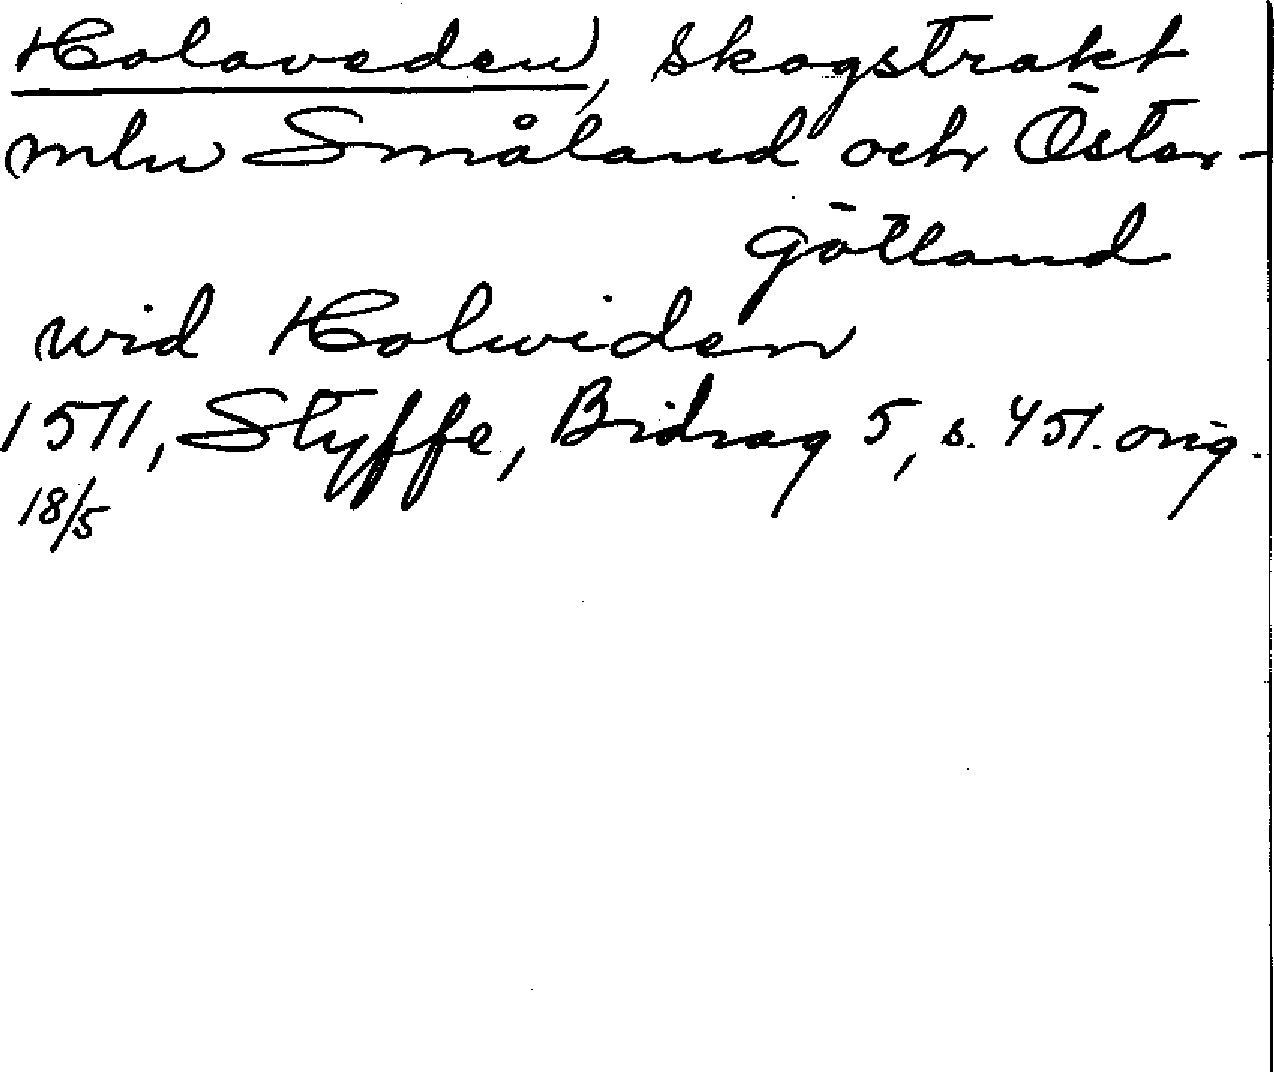 Holaveden, skogstrakt
mln Småland och Öster-
götland
wid Holwiden
1511, Styffe, Bidrag 5, s. 451. orig.
18/5